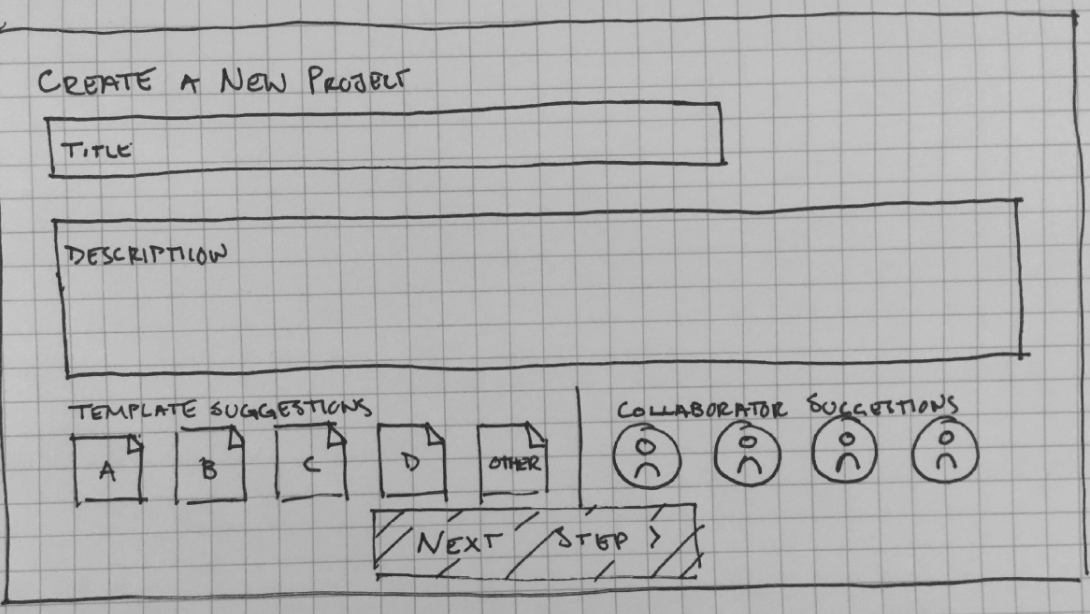 CREATE A NEW PROJECT
TITLE
DESCRIPTION
TEMPLATE SUGGESTIONS
A B C D OTHER
COLLABORATOR SUGGESTIONS
NEXT STEP >